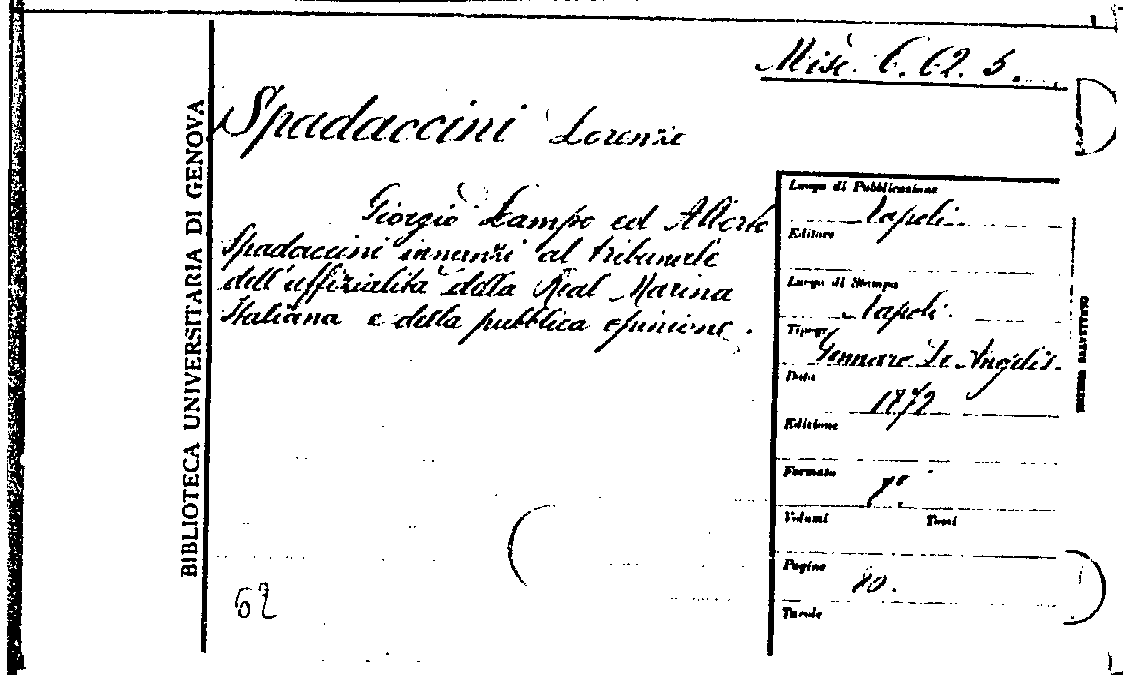 Misc. C. 62. 5.
BIBLIOTECA UNIVERSITARIA DI GENOVA
Spadaccini Lorenzo
Giorgio Lampo ed Alberto
Spadaccini innanzi al tribunale
dell'uffizialità della Real Marina
Italiana e della pubblica opinione.
62
Luogo di Pubblicazione
Napoli
Editore
Luogo di Stampa
Napoli.
Tipogr.
Gennaro De Angelis.
Data
1872
Edizione
Formato
8°.
Volumi Tomi
Pagine
80.
Tavole